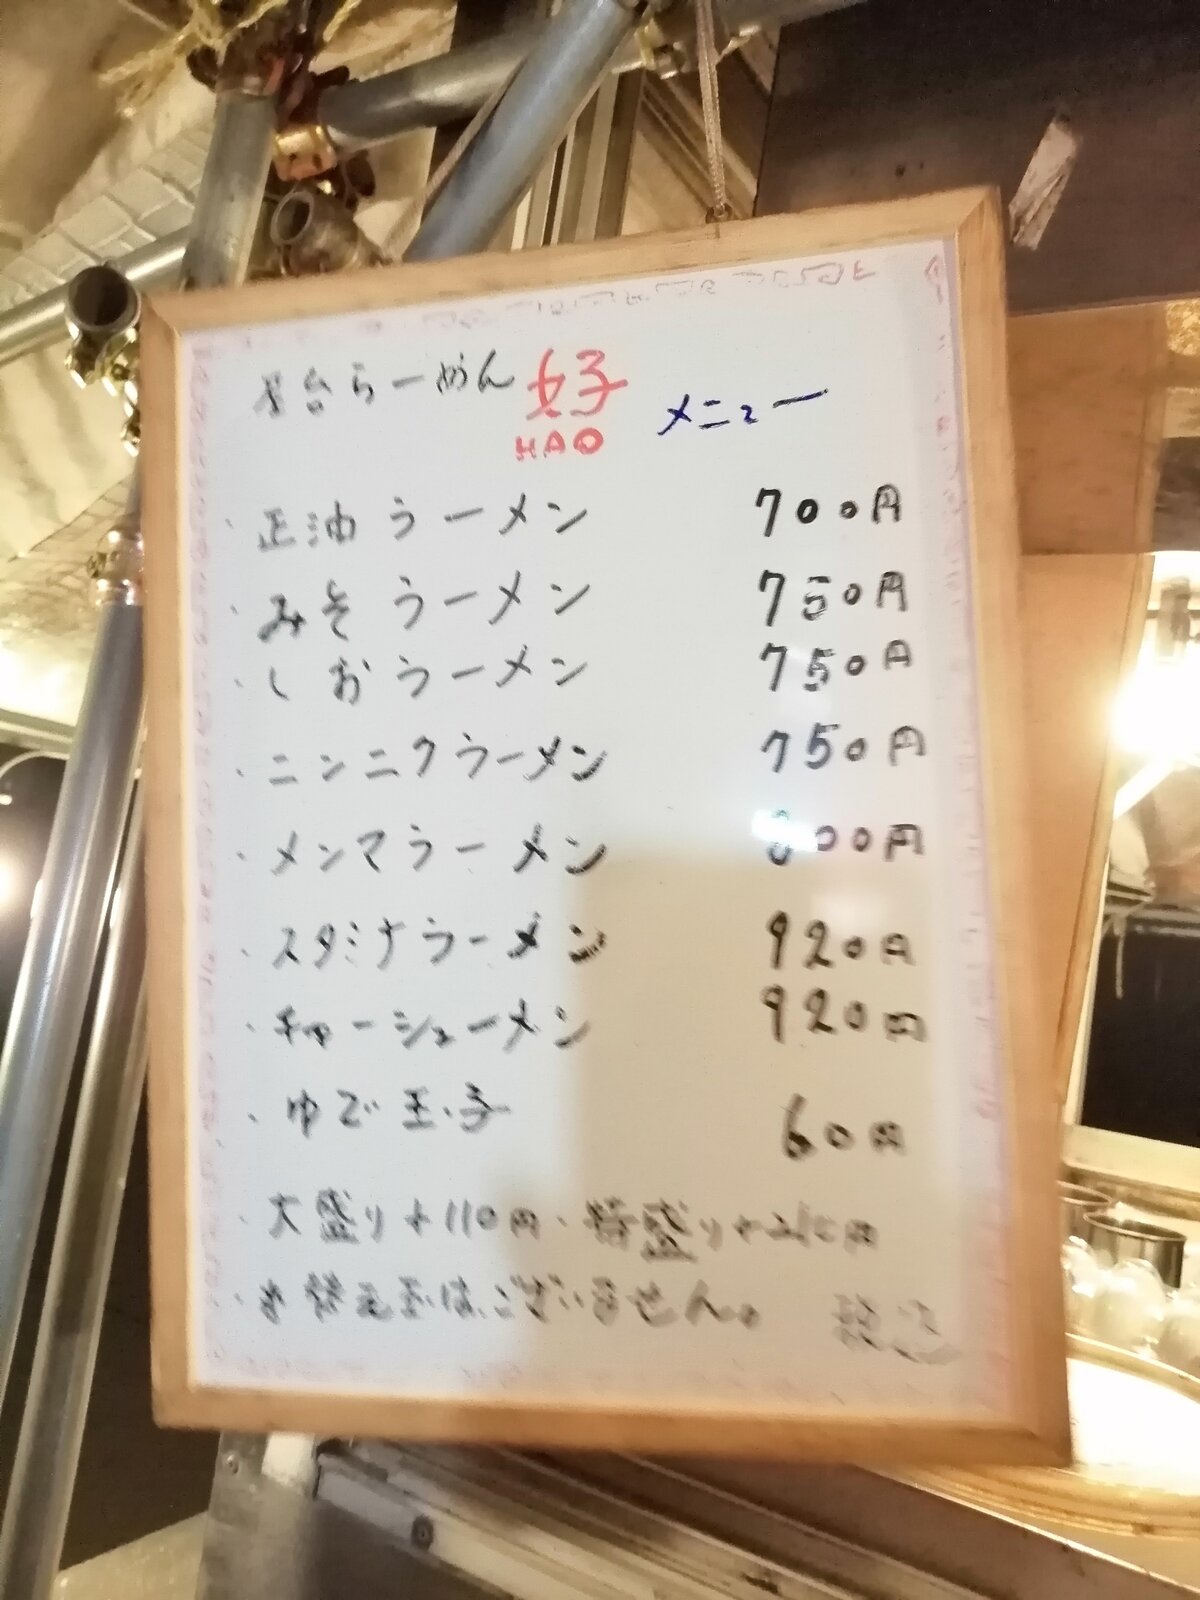 屋台らーめん 好 メニュー
HAO
・正油ラーメン 700円
・みそラーメン 750円
・しおラーメン 750円
・ニンニクラーメン 750円
・メンマラーメン 800円
・スタミナラーメン 920円
・チャーシューメン 920円
・ゆで玉子 60円
・大盛り+110円・特盛り+210円
・お替え玉はございません。 税込